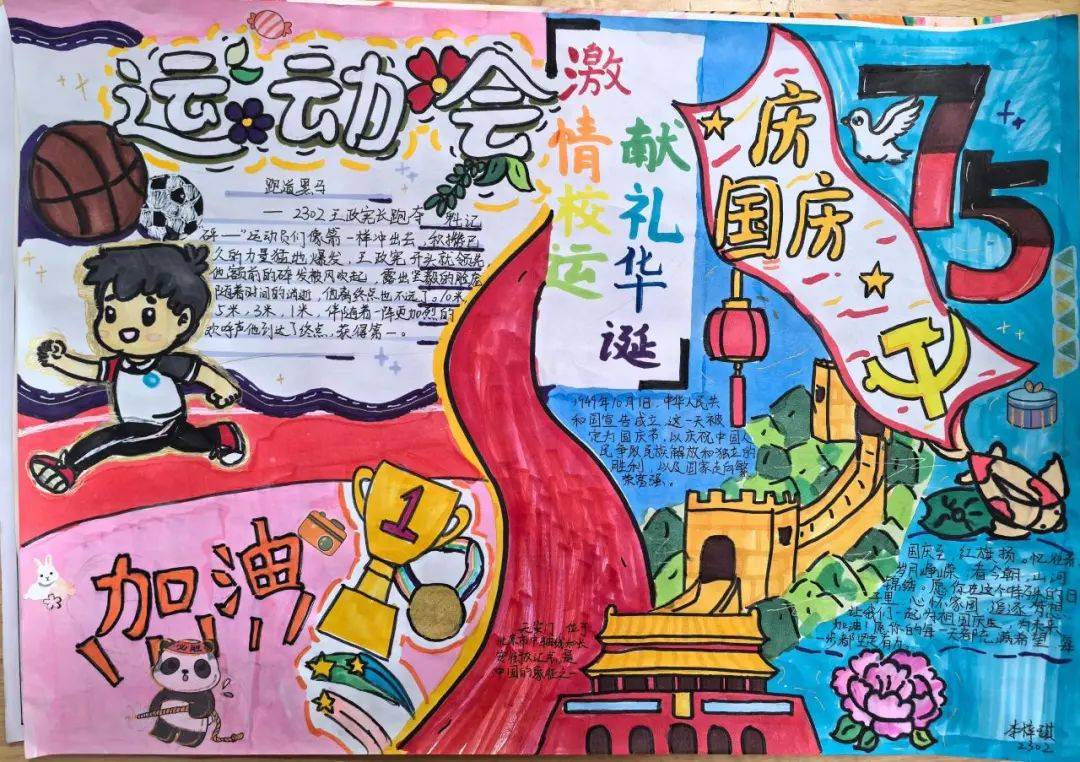 运动会
跑道黑马
——2302王政宪长跑夺 料记
砰——"运动员们像箭一样冲出去,积攒已
久的力量猛地爆发,王政宪开头就领先
他额前的碎发被风吹起,露出坚毅的脸庞
随着时间的消逝,他离终点也不远了。10米,
5米,3米,1米,伴随着一阵更加烈的
欢呼声他到达了终点,获得第一。
加油
必胜
1
激情校运
献礼华诞
庆
国庆
75
1949年10月1日,中华人民共
和国宣告成立,这一天被
定为国庆节,以庆祝中国人
民争取民族解放和独立的
胜利,以及国家走向繁
荣富强。
天安门 位于
北京市中轴线和长
安街
中国的象征之一
国庆至,红旗扬。忆往昔
岁月峥嵘,看今朝,山河
锦绣。愿你在这个特殊的日
子里,心怀家国,追逐梦想
让我们一起为祖国庆生,为未来
加油!愿你的每一天都充满希望,每
一步都坚定有力。
李梓琪
2302